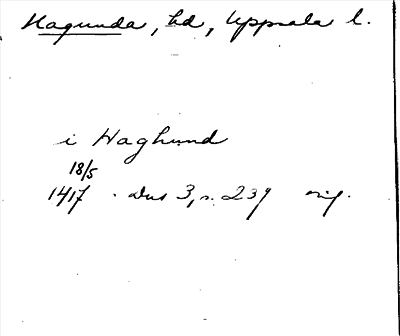 Hagunda, hd, Uppsala l.
i Haghund
18/5
1417 . DHS 3, s. 239 orig.